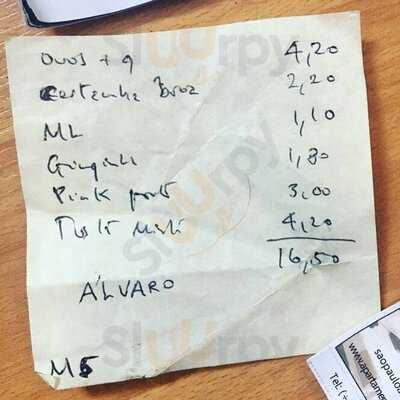 ovos + q 4,20
castanha Broa 2,20
ML 1,10
Ginginha 1,80
Pink port 3,00
Tosta Mista 4,20
16,50
ÁLVARO
M5
saopaulo
www.apartame
Tel: (+
Sluurpy